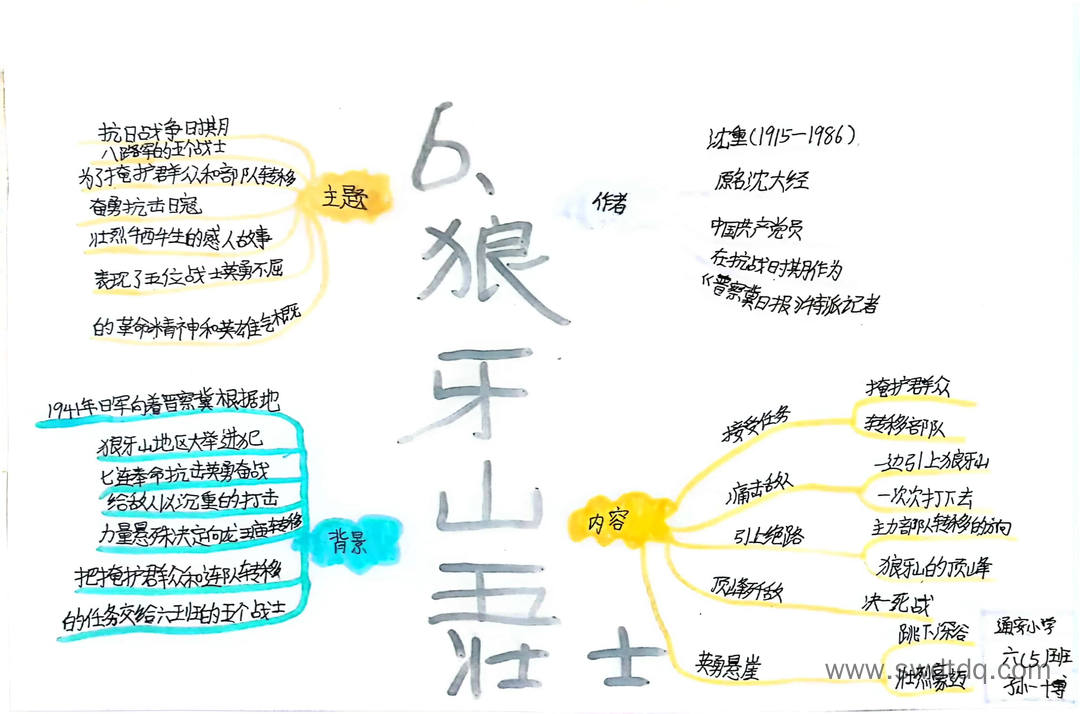 6、狼牙山五壮士
主题
抗日战争日期月
八路军的五个战士
为了掩护群众和部队转移
奋勇抗击日寇
壮烈牺牲的感人故事
表现了五位战士英勇不屈
的革命精神和英雄气概
作者
沈重(1915—1986)
原名沈大经
中国共产党员
在抗战时期作为
《晋察冀日报》特派记者
背景
1941年日军向着晋察冀根据地
狼牙山地区大举进犯
七连奉命抗击英勇奋战
给敌人以沉重的打击
力量悬殊决定向龙王庙转移
把掩护群众和连队转移
的任务交给六班的五个战士
内容
接受任务
掩护群众
转移部队
痛击敌人
一边引上狼牙山
一次次打下去
引上绝路
主力部队转移的方向
狼牙山的顶峰
顶峰歼敌
决一死战
英勇悬崖
跳下深谷
壮烈豪迈
www.swdtdq.com
小学
六(5)班
孙一博